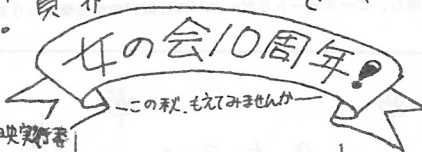 女の会10周年!
―この秋、もえてみませんか―
映実行委